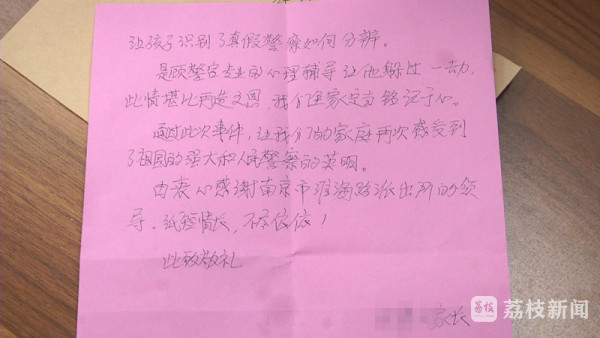 让孩子识别了真假警察如何分辨。
是顾警官专业的心理辅导让他躲过一劫,
此情堪比再造之恩,我们全家定当铭记于心。
通过此次事件,让我们的家庭再次感受到
了祖国的强大和人民警察的英明。
由衷心感谢南京市淮海路派出所的领
导。纸短情长,不尽依依!
此致敬礼
家长
荔枝
荔枝新闻